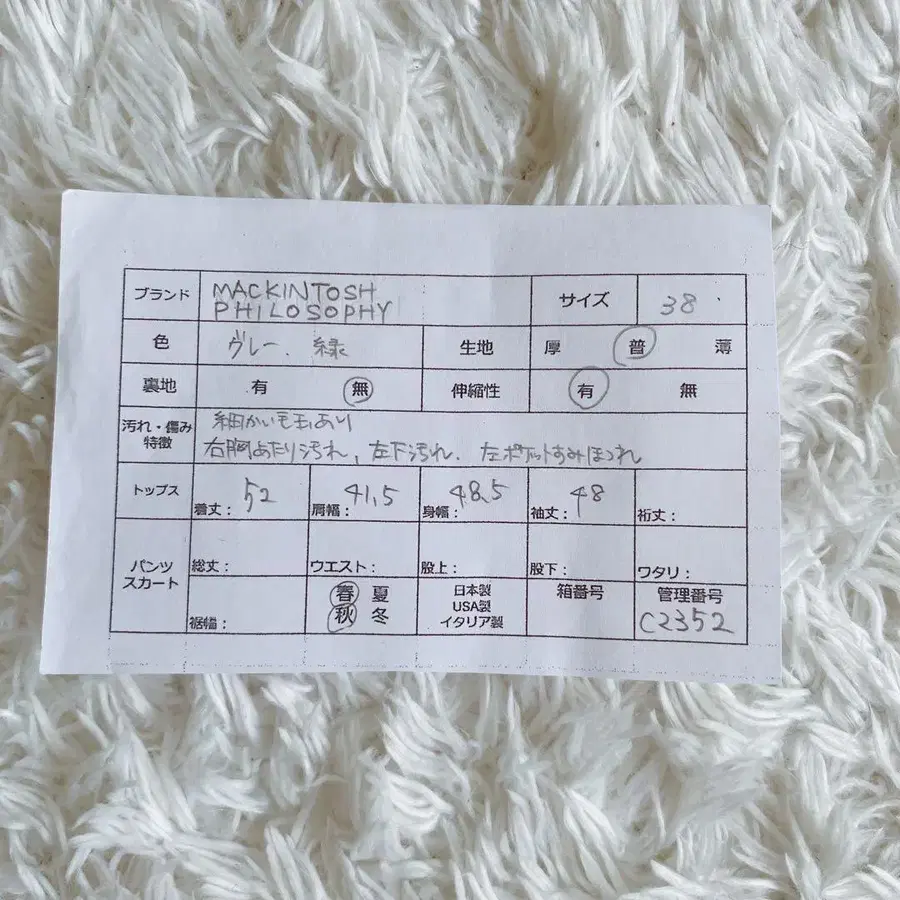 ブランド MACKINTOSH PHILOSOPHY サイズ 38
色 グレー. 緑 生地 厚 普 薄
裏地 有 無 伸縮性 有 無
汚れ・傷み 特徴 細かい毛玉あり
右胸あたり汚れ, 左下汚れ. 左ポケットすみほつれ
トップス 着丈: 52 肩幅: 41,5 身幅: 48.5 袖丈: 48 裄丈:
パンツ スカート 総丈: ウエスト: 股上: 股下: ワタリ:
裾幅: 春 夏 秋 冬 日本製 USA製 イタリア製 箱番号 管理番号 C2352